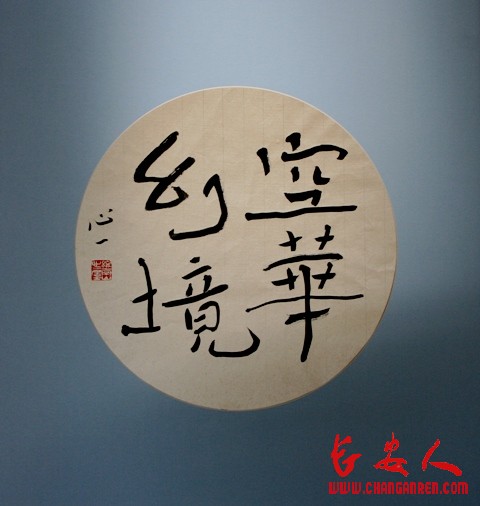 空華
幻境
心一
长安人
WWW.CHANGANREN.COM